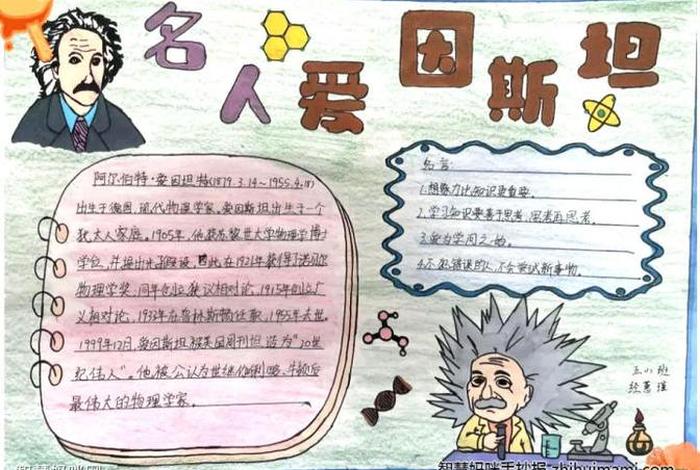 名人爱因斯坦
阿尔伯特·爱因坦特(1879.3.14~1955.4.18)
出生于德国,现代物理学家。爱因斯坦出生于一个
犹太人家庭。1905年,他获苏黎世大学物理学博士
学位,并提出光子假设,因此在1921年获得了诺贝尔
物理学奖,同年创立狭义相对论,1915年创立广
义相对论,1933年在普林斯顿任职,1955年去世。
1999年12月,爱因斯坦被美国周刊坦选为"20世
纪伟人"。他被公认为世继伽利略、牛顿后
最伟大的物理学家。
名言:
1.想象力比知识更重要。
2.学习知识要善于思考,思考再思考。
3.爱为学问之始。
4.不犯错误的人,不会尝试新事物。
五小班
智慧妈咪手抄报 zhihuimami.com